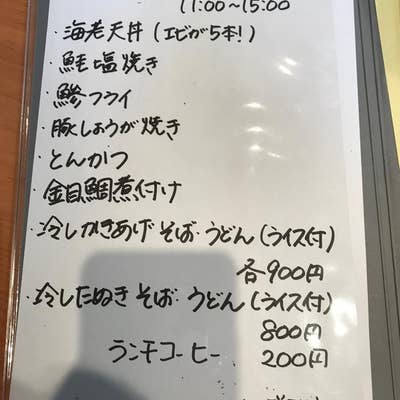 11:00～15:00
・海老天丼(エビが5本!)
・鮭塩焼き
・鯵フライ
・豚しょうが焼き
・とんかつ
・金目鯛煮付け
・冷しかきあげそば・うどん(ライス付)
各900円
・冷したぬきそば・うどん(ライス付)
800円
ランチコーヒー 200円